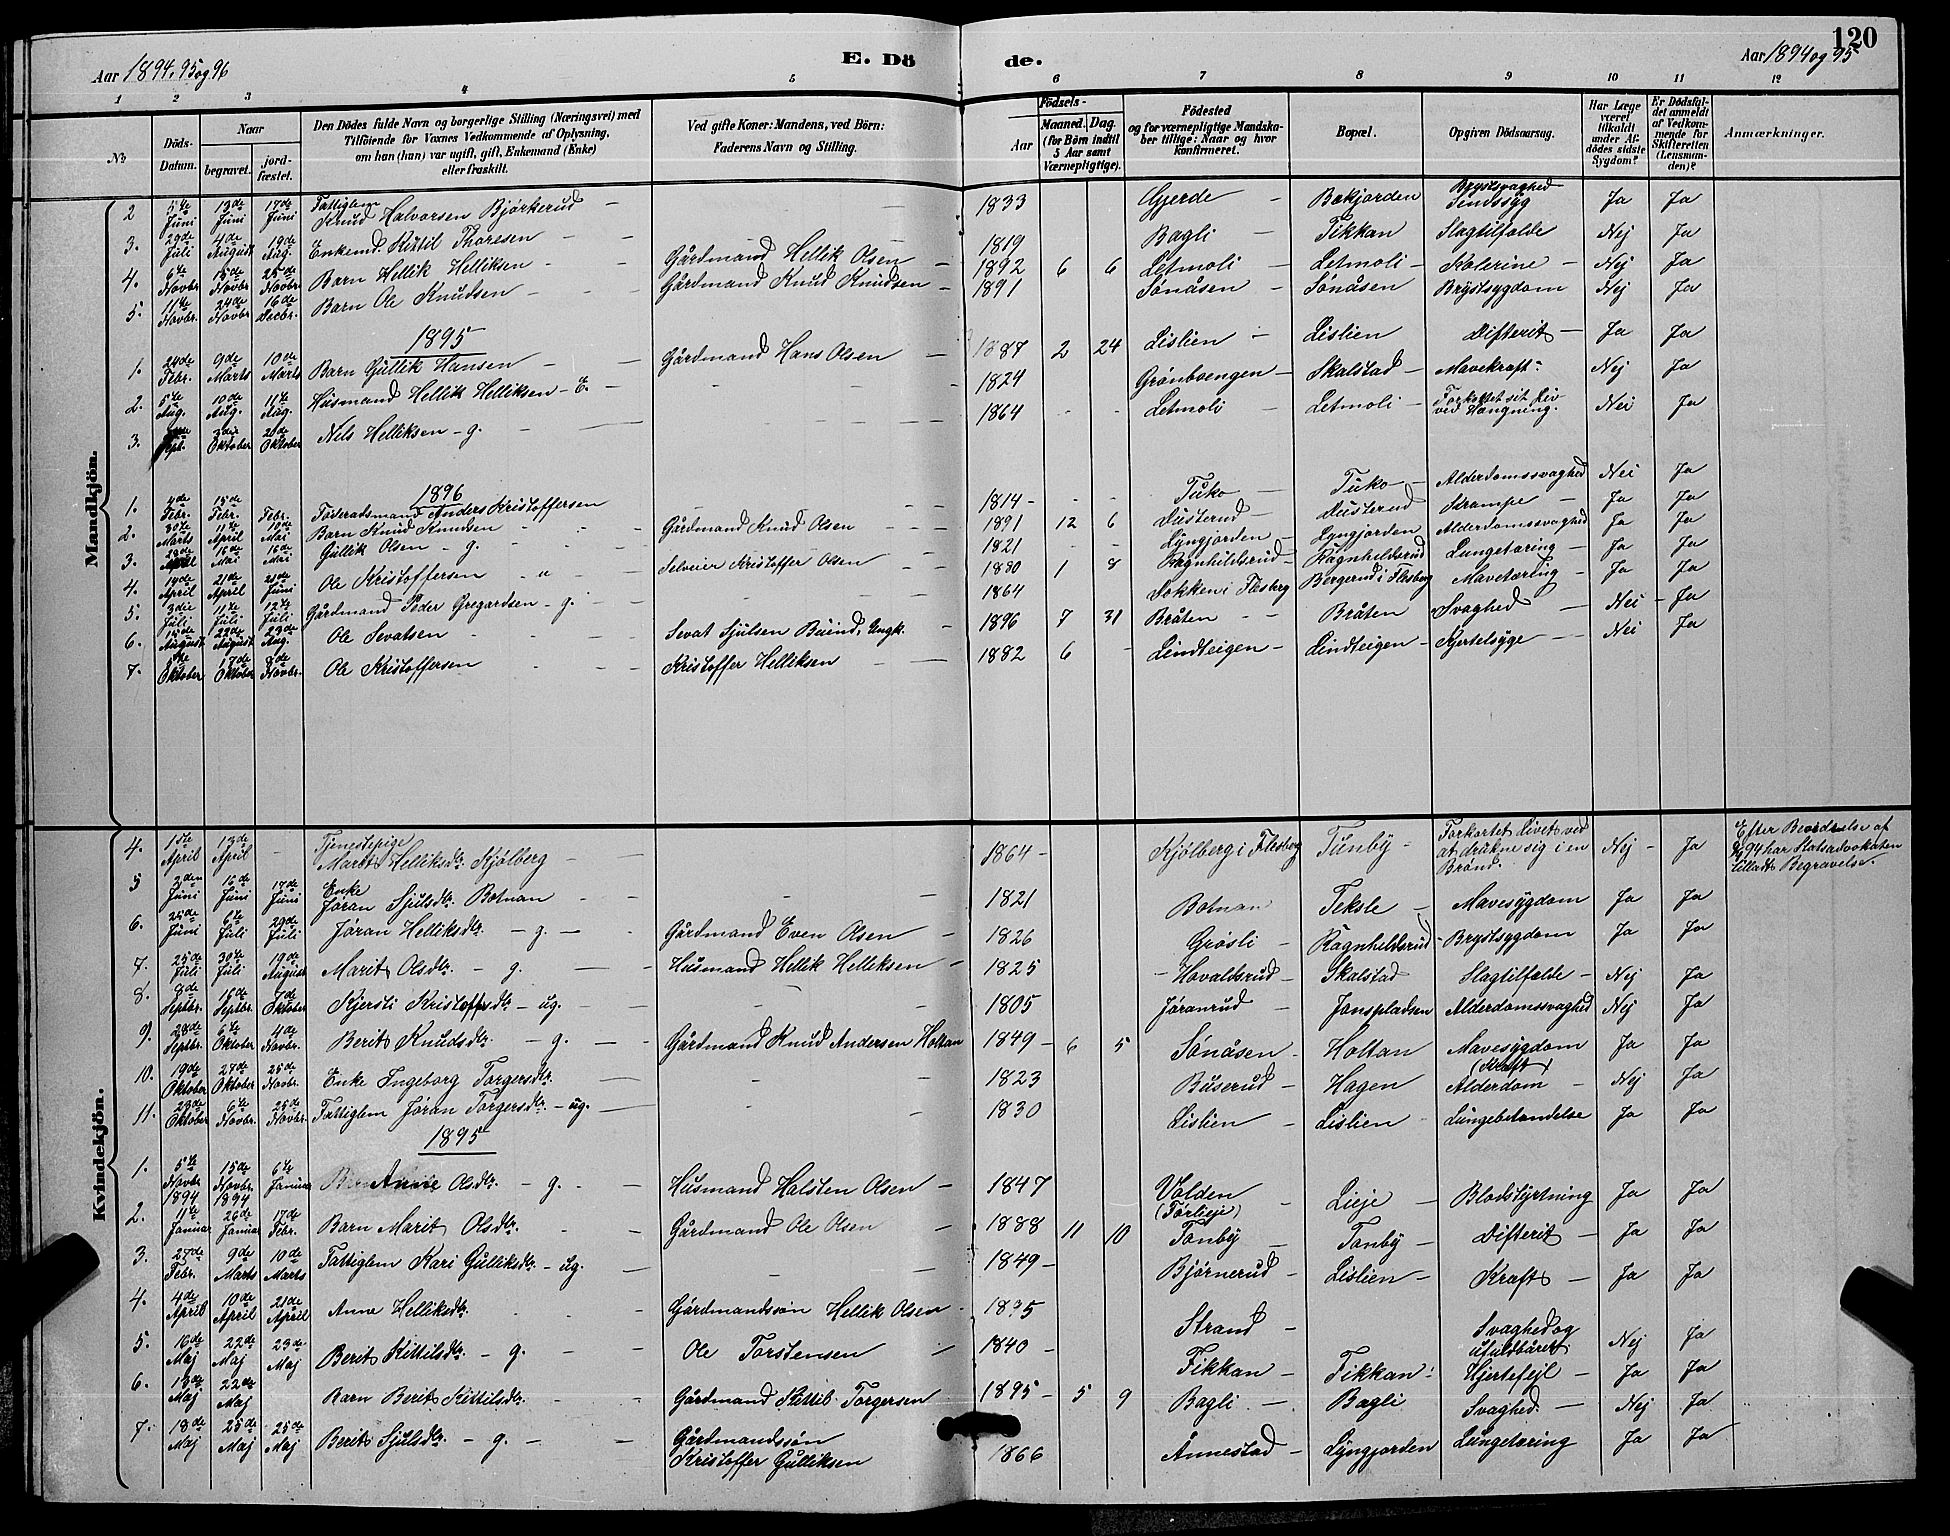 120
Aar 1894, 95 og 96
E. Dö
de.
Aar 1894 og 95
1 2 3 4 5 6 7 8 9 10 11 12
No
Döds-Datum.
Naar
begravet.
jord-fæstet.
Den Dödes fulde Navn og borgerlige Stilling (Næringsvei) med
Tilföiende for Voxnes Vedkommende af Oplysning,
om han (hun) var ugift, gift, Enkemand (Enke)
eller fraskilt.
Ved gifte Koner: Mandens, ved Börn:
Faderens Navn og Stilling.
Födsels-
Aar
Maaned. Dag.
(for Börn indtil
5 Aar samt
Værnepligtige).
Födested
og for værnepligtige Mandska-
ber tillige: Naar og hvor
konfirmeret.
Bopæl.
Opgiven Dödsaarsag.
Har Læge
været
tilkaldt
under Af-
dödes sidste
Sygdom?
Er Dödsfal-
det anmeldt
af Vedkom-
mende for
Skifteretten
(Lensman-
den)?
Anmærkninger.
Mandkjön.
2 5te Juni 13de Juni 17de Juni Fattiglem Knud Halvorsen Bjørkerud - - 1833 Gjerde - Bakjorden Brystsvaghed Sindssyg Ja Ja
3. 29de Juli 4de August 19de Aug. Enkemd. Kittil Thoresen - - 1819 Bagli - Fikkan Slagtilfælde Nej Ja
4. 6te Novbr 15de Novbr 25de Novbr. Barn Hellik Helliksen - - Gårdmand Hellik Olsen - 1892 6 6 Letmoli - Letmoli - Kolerine - Nej Ja
5. 11te Novbr. 24de Novbr 16de Decbr. Barn Ole Knudsen - - Gårdmand Knud Knudsen - 1891 Sønåsen - Sønåsen Brystsygdom Nej Ja
1895
1. 24de Febr. 9de Marts 10de Marts Barn Gullik Hansen - - Gårdmand Hans Olsen - 1887 2 24 Lislien - Lislien Difterit - Ja Ja
2. 5te Aug. 10de Aug. 11te Aug. Husmand Hellik Helliksen - E. - 1824 Grønvoengen - Skalstad - Mavekræft - Nej Ja
3. Sept. 3die Oktober 20de Oktober Nels Helliksen - g. - 1864 - - Letmoli - Letmoli - Forkortet sit Liv ved Hængning. Nei Ja
1896
1. 4de Febr. 15de Febr. Febr. Føderådsmand Anders Kristoffersen 1814 - - - Tuko - Tuko - Alderdomssvaghed Nei Ja
2. 30te Marts 11te April 10de Mai Barn Knud Knudsen - - Gårdmand Knud Olsen - - 1891 12 6 Dusterud - Dusterud - Krampe - Ja Ja
3. 28de April 16de Mai 16de Mai Gullik Olsen - g. - - 1821 - - Lyngjorden - Lyngjorden Alderdomssvaghed Ja Ja
4. 14de April 21de April 21de Juni Ole Kristoffersen " u - Selveier Kristoffer Olsen - - 1880 1 8 Ragnhildsrud - Ragnhildsrud Lungetæring - Ja Ja
5. 3die Juli 11te Juli 12te Juli Gårdmand Peder Gregardsen - g. - 1864 Dokken i Flesberg Bergerud i Flesberg Mavetæring - Ja Ja
6. 15de August 22de August 23de Aug. Ole Sevatsen - - - Sevat Sjulsen Buind, Ungk. - 1896 7 31 Bråten - - Bråten Svaghed - Nei - Ja
7. Oktober 17de Oktober 8de Novbr. Ole Kristoffersen - - - Kristoffer Helliksen - - 1882 6 - Lindteigen - Lindteigen - Kjertelsyge - - Nei Ja
Kvindekjön.
4. 1ste April 13de April - Tjenestepige Marit Helliksdtr. Kjølberg - - 1864 - Kjølberg i Flesberg Tunby - Forkortet Livet ved at drukne sig i en Brønd. Nej - Ja Efter Bevidnelse af 94 har Statsadvokaten tilladt Begravelse.
5 2den Juni 16de Juni 17de Juni Enke Jøran Sjulsdtr. Botnan - - 1821 Botnan Teksle - Mavesygdom Ja Ja
6. 25de Juni 6te Juli 29de Juli Jøran Helliksdtr. - g. - - Gårdmand Even Olsen - 1826 Grøsli - Ragnhildsrud - Brystsygdom Ja Ja
7. 25de Juli 30te Juli 19de August Marit Olsdtr. - g. - - Husmand Hellik Helliksen - 1825 - Hovaldsrud - Skalstad Slagtilfælde - Nej Ja
8. 8de Septbr. 16de Septbr. 7de Oktober Kjersti Kristoffsdtr. - ug. - - 1805 Jøranrud - Jonspladsen Alderdomssvaghed Nej Ja
9. 28de Septbr. 6te Oktober 4de Novbr. Berit Knudsdtr. - g. - - Gårdmand Knud Andersen Holtan 1849 - 6 5 Sønåsen - Holtan Mavesygdom (Kræft) Ja Ja
10. 19de Oktober 27de Oktober 25de Novbr. Enke Ingeborg Torgersdtr. - - 1823 Buserud - Hagen Alderdom - Nej Ja
11. 23de Oktober 6te Novbr. 25de Novbr. Fattiglem Jøran Torgersdtr. - ug. - - 1830 Lislien - Lislien - Lungebetændelse Ja Ja
1895
1. 5te Novbr 1894 15de Novbr. 1894 6te Januar Anne Olsdtr. - g. - - Husmand Halsten Olsen - 1847 Volden (Førlieje) - Lieje - Blodstyrtning Ja Ja
2. 11te Januar 26de Januar 17de Febr. Barn Marit Olsdtr. - - Gårdmand Ole Olsen - 1888 11 10 Tonby - Tonby - Difterit - Ja Ja
3. 27de Febr. 9de Marts 10de Marts Fattiglem Kari Gulliksdtr. - ug. - - 1849 - Bjørnerud - Lislien - Kræft - Ja Ja
4. 4de April 10de April 21de April Anne Helliksdtr. - - Gårdmandssøn Hellik Olsen - 1895 Strand - Svaghed og ufuldbåret Nej Ja
5. 16de Maj 22de Maj 23de Maj Berit Kittilsdtr. - g. - - Ole Torstensen - 1840 - Fikkan - Fikkan - Hjertefejl - Ja Ja
6. 13de Maj 22de Maj Barn Berit Kittilsdtr. - - Gårdmand Kittil Torgersen 1895 - 5 9 Bagli - - Bagli Svaghed. - Nej Ja
7. 18de Maj 25de Maj 25de Maj Berit Sjulsdtr. - g. - - Gårdmandssøn Kristoffer Gulliksen 1866 Ånnestad - Lyngjorden Lungetæring Ja Ja